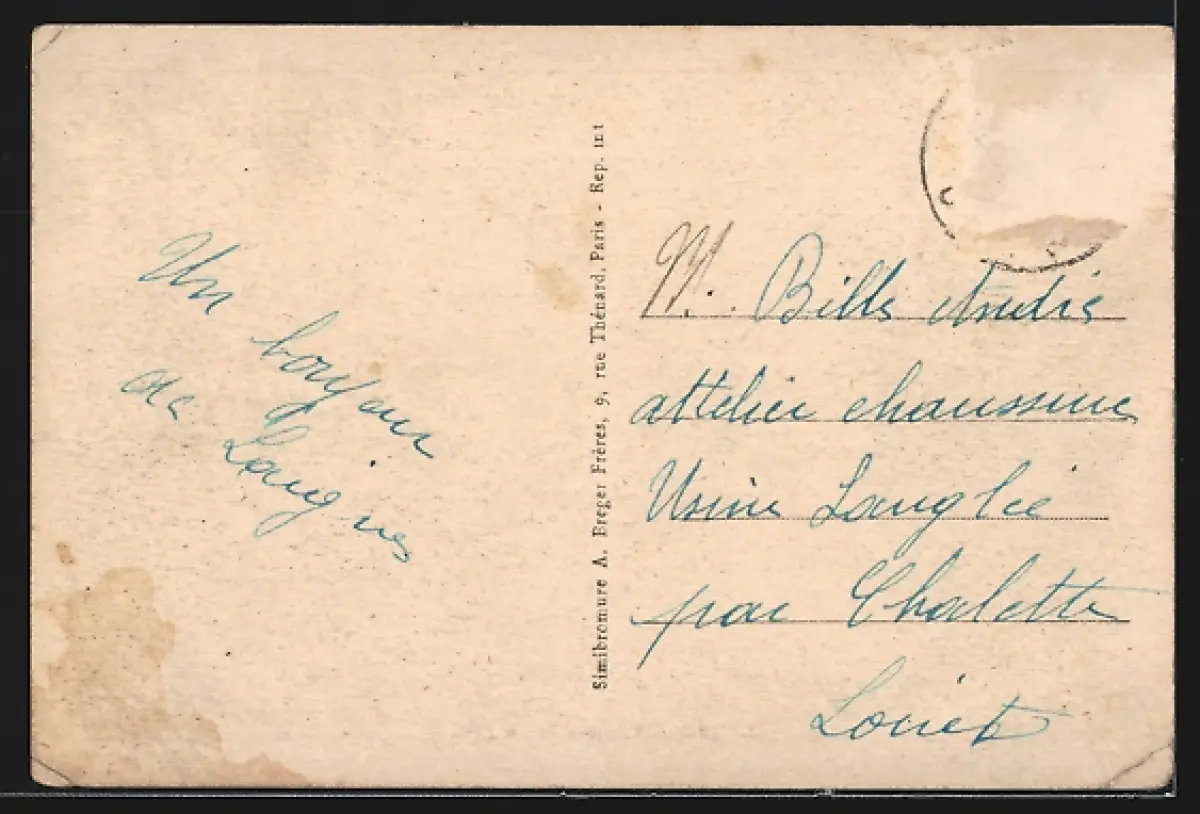 Un
bonjour
de
Laignes
Simibromure A. Breger Frères, 9, rue Thénard, Paris - Rep. int
M. Bills André
attelier chaussures
Usine Langlée
par Chalette
Loiret